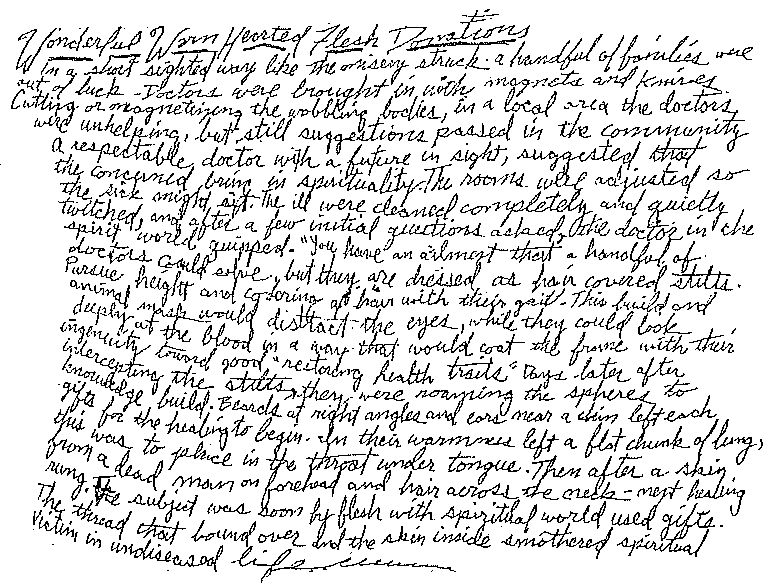 Wonderful Warm Hearted Flesh Donations
In a short sighted way like the misery struck a handful of families were
out of luck. Doctors were brought in with magnets and knives.
Cutting or magnetizing the wobbling bodies, in a local area the doctors
were unhelping, but still suggestions passed in the community
a respectable doctor with a future in sight, suggested that
the concerned bring in spirituality. The rooms were adjusted so
the sick might sit. The ill were cleaned completely and quietly
twitched, and after a few initial questions asked, the doctor in the
spirit world quipped. "You have an ailment that a handful of
doctors could solve, but they are dressed as hair covered stilts.
Pursue height and covering of hair with their gait. This build and
animal mask would distract the eyes, while they could look
deeply at the blood in a way that would coat the frame with their
ingenuity toward good "restoring health traits." Days later after
intercepting the stilts, they were roaming the spheres to
knowledge build. Beards at right angles and ears near a chin left each
gifts for the healing to begin. In their warmness left a flat chunk of lung,
this was to place in the throat under tongue. Then after a skin
from a dead man on forehead and hair across the neck - next healing
rung. The subject was soon by flesh with spiritual world used gifts.
The thread that bound over and the skin inside smothered spiritual
victim in undiseased life